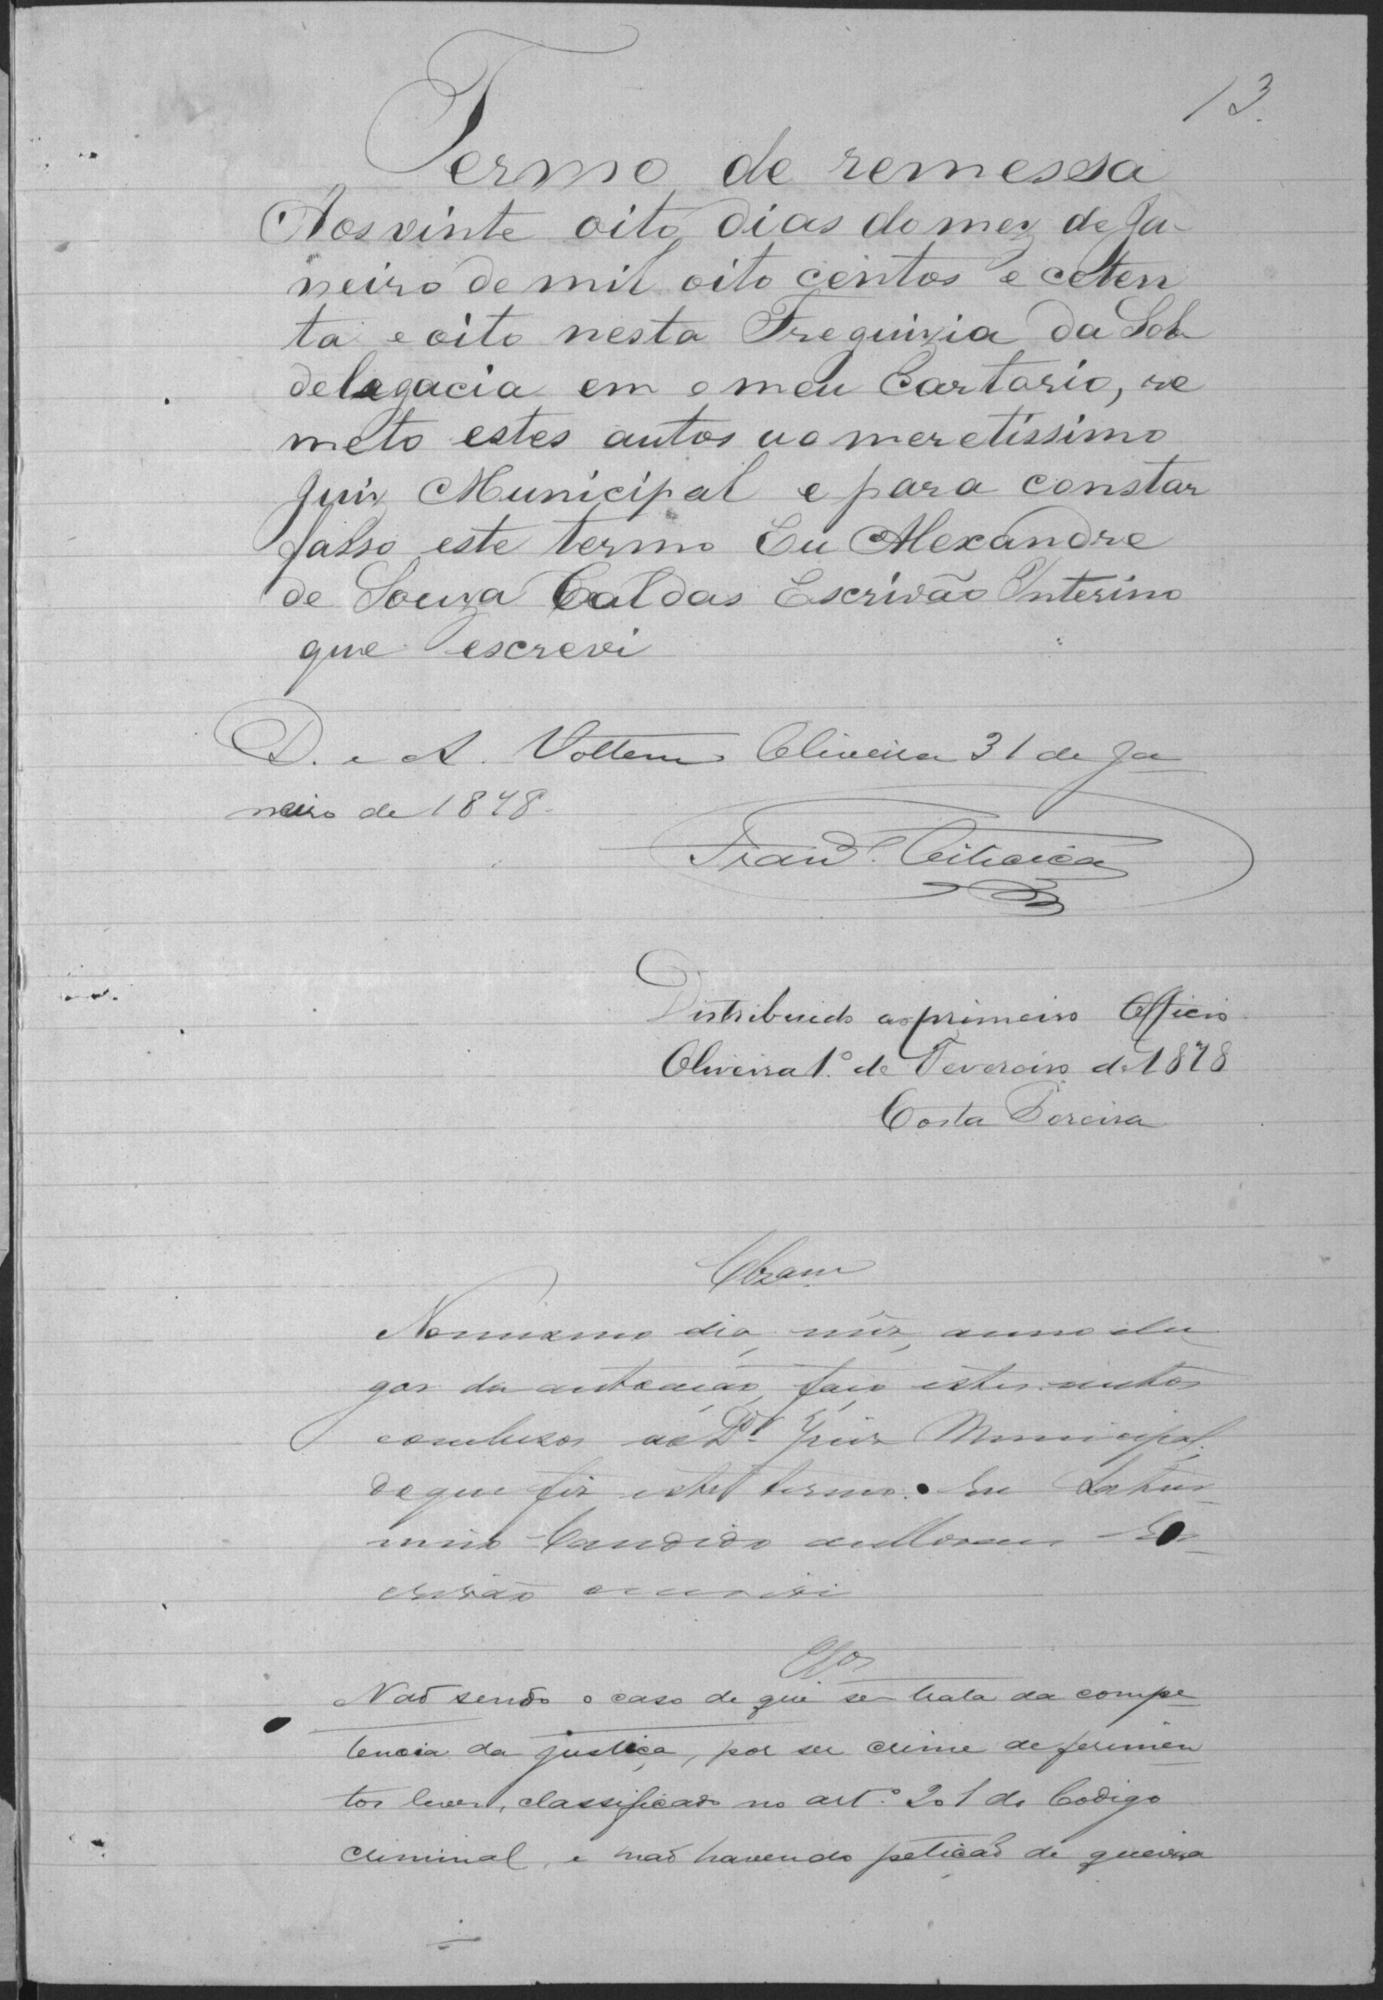 13.
Termo de remessa
Aos vinte oito dias do mez de Ja-
neiro de mil oito centos e ceten
ta e oito nesta Freguizia da Sob
delegacia em o meu Cartorio, re
meto estes autos ao meretissimo
Juiz Municipal e para constar
fasso este termo Eu Alexandre
de Souza Caldas Escrivão Interino
que escrevi
D. e A. Voltem Oliveira 31 de Ja
neiro de 1878.
Distribuido ao primeiro Officio
Oliveira 1.º de Fevereiro de 1878
Costa Pereira
No mesmo dia, mez, anno e lu
gar da autoação, faço estes autos
conclusos ao Dr. Juiz Municipal,
de que fiz este termo. Eu
Candido de Es
crivão escrevi
Clos
Não sendo o caso de que se trata da compe
tencia da justiça, por ser crime de ferimen
tos leves, classificado no art.º 201 do Codigo
criminal, e não havendo petição de queixa